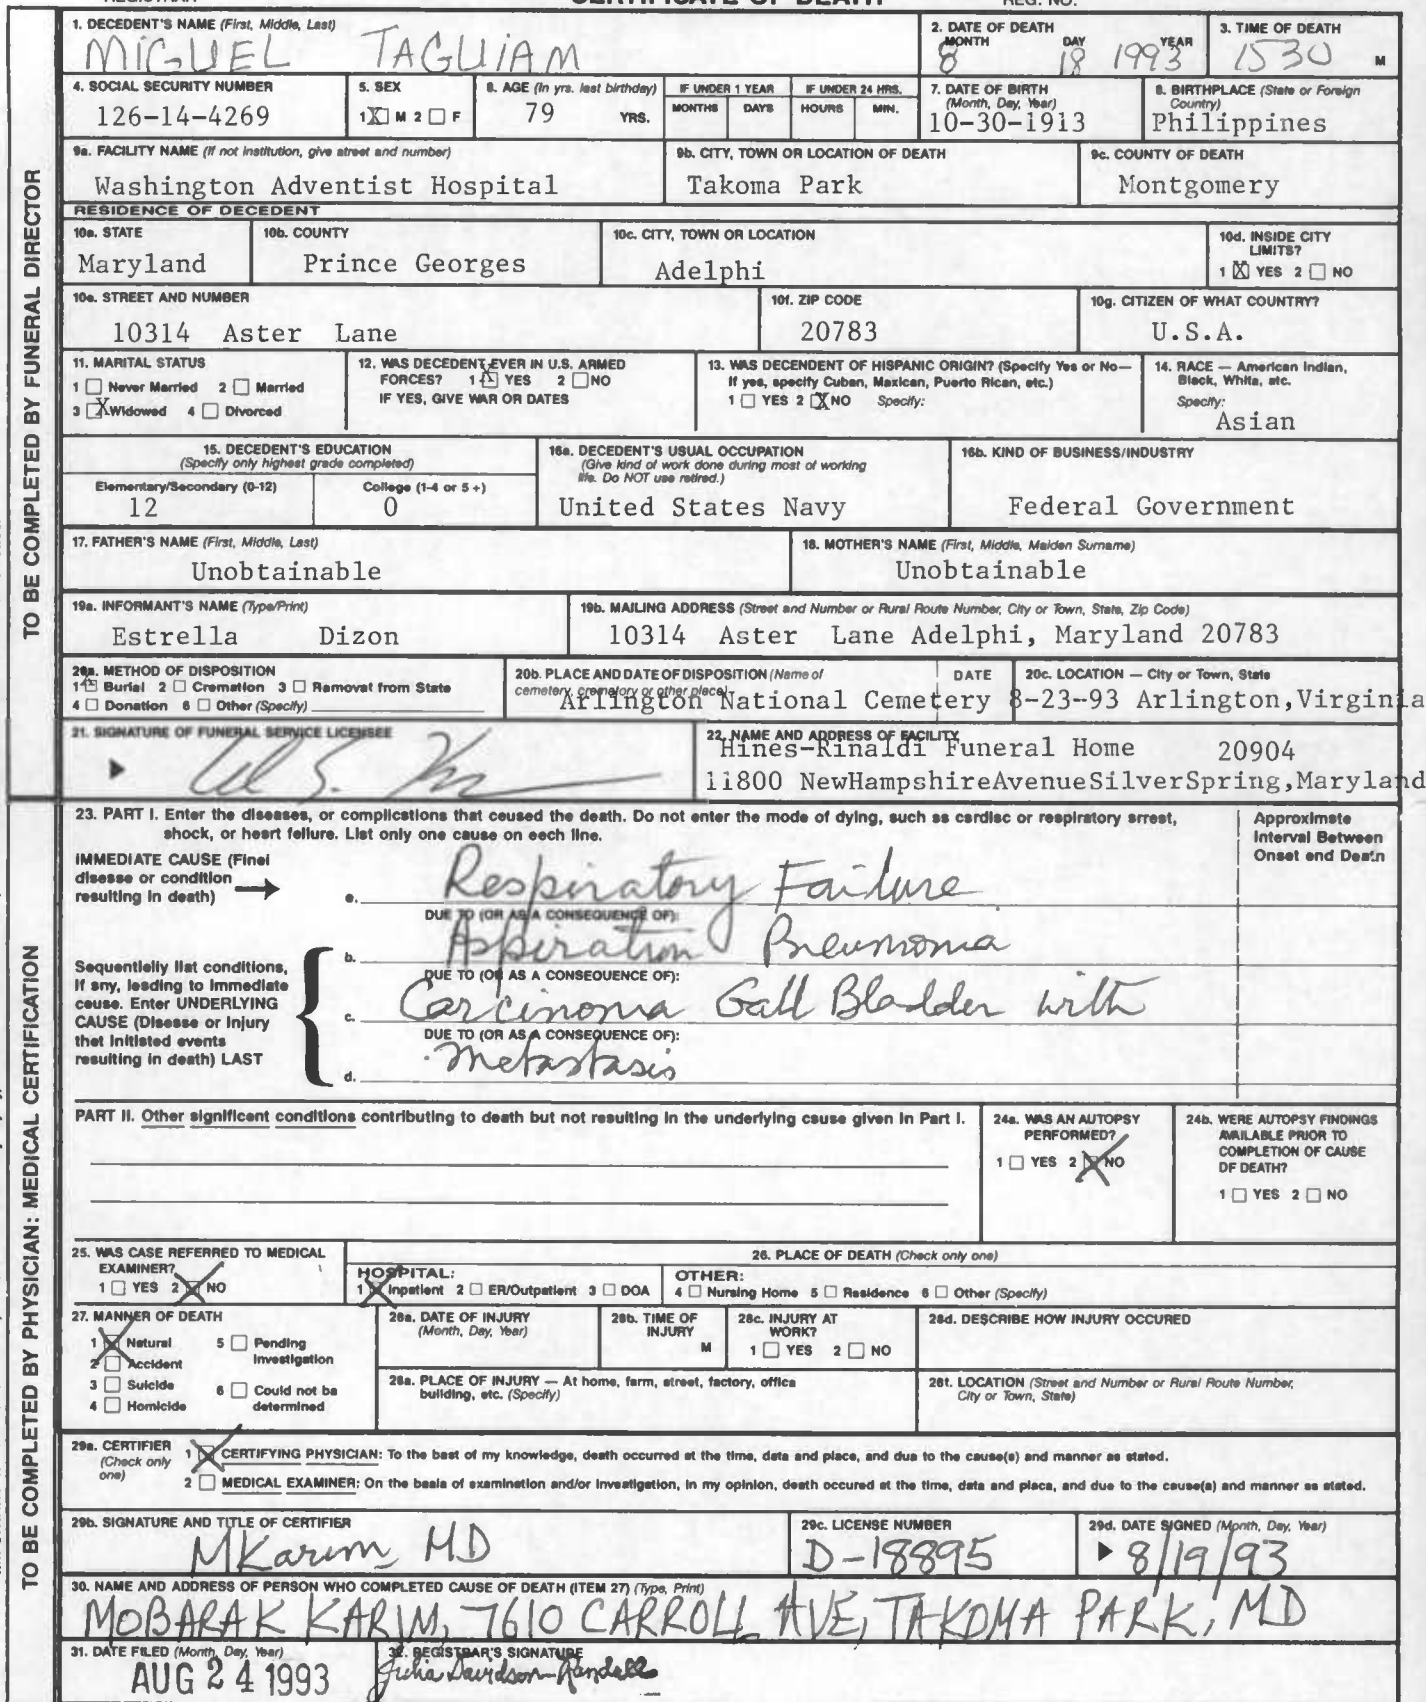 CERTIFICATE OF DEATH
REG. NO.
1. DECEDENT'S NAME (First, Middle, Last)
MIGUEL TAGUIAM
2. DATE OF DEATH
MONTH DAY YEAR
8 18 1993
3. TIME OF DEATH
1530 M
4. SOCIAL SECURITY NUMBER
126-14-4269
5. SEX
1 X M 2 F
6. AGE (In yrs. last birthday)
79 YRS.
IF UNDER 1 YEAR
MONTHS DAYS
IF UNDER 24 HRS.
HOURS MIN.
7. DATE OF BIRTH
(Month, Day, Year)
10-30-1913
8. BIRTHPLACE (State or Foreign
Country)
Philippines
9a. FACILITY NAME (If not institution, give street and number)
Washington Adventist Hospital
9b. CITY, TOWN OR LOCATION OF DEATH
Takoma Park
9c. COUNTY OF DEATH
Montgomery
RESIDENCE OF DECEDENT
10a. STATE
Maryland
10b. COUNTY
Prince Georges
10c. CITY, TOWN OR LOCATION
Adelphi
10d. INSIDE CITY
LIMITS?
1 X YES 2 NO
10e. STREET AND NUMBER
10314 Aster Lane
10f. ZIP CODE
20783
10g. CITIZEN OF WHAT COUNTRY?
U.S.A.
11. MARITAL STATUS
1 Never Married 2 Married
3 X Widowed 4 Divorced
12. WAS DECEDENT EVER IN U.S. ARMED
FORCES? 1 X YES 2 NO
IF YES, GIVE WAR OR DATES
13. WAS DECENDENT OF HISPANIC ORIGIN? (Specify Yes or No—
If yes, specify Cuban, Mexican, Puerto Rican, etc.)
1 YES 2 X NO Specify:
14. RACE — American Indian,
Black, White, etc.
Specify:
Asian
15. DECEDENT'S EDUCATION
(Specify only highest grade completed)
Elementary/Secondary (0-12)
12
College (1-4 or 5+)
0
16a. DECEDENT'S USUAL OCCUPATION
(Give kind of work done during most of working
life. Do NOT use retired.)
United States Navy
16b. KIND OF BUSINESS/INDUSTRY
Federal Government
17. FATHER'S NAME (First, Middle, Last)
Unobtainable
18. MOTHER'S NAME (First, Middle, Maiden Surname)
Unobtainable
19a. INFORMANT'S NAME (Type/Print)
Estrella Dizon
19b. MAILING ADDRESS (Street and Number or Rural Route Number, City or Town, State, Zip Code)
10314 Aster Lane Adelphi, Maryland 20783
20a. METHOD OF DISPOSITION
1 X Burial 2 Cremation 3 Removal from State
4 Donation 6 Other (Specify)
20b. PLACE AND DATE OF DISPOSITION (Name of
cemetery, crematory or other place)
DATE
Arlington National Cemetery 8-23-93
20c. LOCATION — City or Town, State
Arlington,Virginia
21. SIGNATURE OF FUNERAL SERVICE LICENSEE
22. NAME AND ADDRESS OF FACILITY
Hines-Rinaldi Funeral Home 20904
11800 NewHampshireAvenueSilverSpring,Maryland
TO BE COMPLETED BY FUNERAL DIRECTOR
23. PART I. Enter the diseases, or complications that caused the death. Do not enter the mode of dying, such as cardiac or respiratory arrest,
shock, or heart failure. List only one cause on each line.
Approximate
Interval Between
Onset and Death
IMMEDIATE CAUSE (Final
disease or condition
resulting in death)
a. Respiratory Failure
DUE TO (OR AS A CONSEQUENCE OF):
b. Aspiration Pneumonia
DUE TO (OR AS A CONSEQUENCE OF):
c. Carcinoma Gall Bladder with
DUE TO (OR AS A CONSEQUENCE OF):
d. Metastasis
Sequentially list conditions,
if any, leading to immediate
cause. Enter UNDERLYING
CAUSE (Disease or injury
that initiated events
resulting in death) LAST
PART II. Other significant conditions contributing to death but not resulting in the underlying cause given in Part I.
24a. WAS AN AUTOPSY
PERFORMED?
1 YES 2 X NO
24b. WERE AUTOPSY FINDINGS
AVAILABLE PRIOR TO
COMPLETION OF CAUSE
OF DEATH?
1 YES 2 NO
25. WAS CASE REFERRED TO MEDICAL
EXAMINER?
1 YES 2 X NO
26. PLACE OF DEATH (Check only one)
HOSPITAL:
1 X Inpatient 2 ER/Outpatient 3 DOA
OTHER:
4 Nursing Home 5 Residence 6 Other (Specify)
27. MANNER OF DEATH
1 X Natural 5 Pending
Investigation
2 Accident
3 Suicide 6 Could not be
determined
4 Homicide
28a. DATE OF INJURY
(Month, Day, Year)
28b. TIME OF
INJURY
M
28c. INJURY AT
WORK?
1 YES 2 NO
28d. DESCRIBE HOW INJURY OCCURED
28e. PLACE OF INJURY — At home, farm, street, factory, office
building, etc. (Specify)
28f. LOCATION (Street and Number or Rural Route Number,
City or Town, State)
29a. CERTIFIER
(Check only
one)
1 X CERTIFYING PHYSICIAN: To the best of my knowledge, death occurred at the time, date and place, and due to the cause(s) and manner as stated.
2 MEDICAL EXAMINER: On the basis of examination and/or investigation, in my opinion, death occured at the time, date and place, and due to the cause(s) and manner as stated.
29b. SIGNATURE AND TITLE OF CERTIFIER
MKarim MD
29c. LICENSE NUMBER
D-18895
29d. DATE SIGNED (Month, Day, Year)
8/19/93
30. NAME AND ADDRESS OF PERSON WHO COMPLETED CAUSE OF DEATH (ITEM 27) (Type, Print)
MOBARAK KARIM, 7610 CARROLL AVE, TAKOMA PARK, MD
31. DATE FILED (Month, Day, Year)
AUG 24 1993
32. REGISTRAR'S SIGNATURE
Julia Davidson-Randall
TO BE COMPLETED BY PHYSICIAN: MEDICAL CERTIFICATION